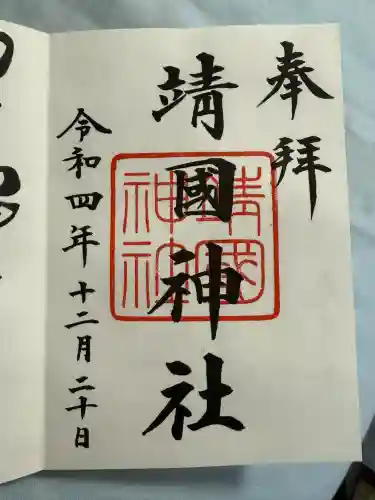 奉拝
靖國神社
靖國
神社
令和四年十二月二十日